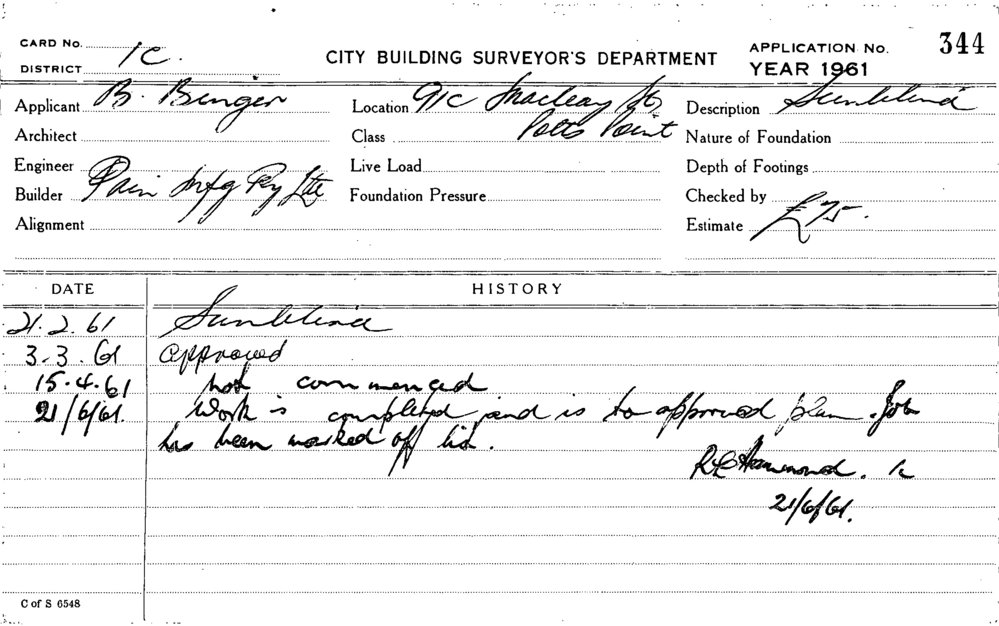 CARD No. 1C.
DISTRICT
CITY BUILDING SURVEYOR'S DEPARTMENT
APPLICATION No. 344
YEAR 1961
Applicant B. Binger
Location 91C Macleay St
Potts Point
Description Sunblind
Architect
Class
Nature of Foundation
Engineer
Live Load
Depth of Footings
Builder Pain Mfg Py Lte
Foundation Pressure
Checked by
Alignment
Estimate £75.
DATE
HISTORY
21.2.61 Sunblind
3-3.61 Approved
15.4.61 not commenced
21/6/61. Work is completed and is to approved plan. Job
has been marked off list.
Hammond. 1c
21/6/61.
C of S 6548